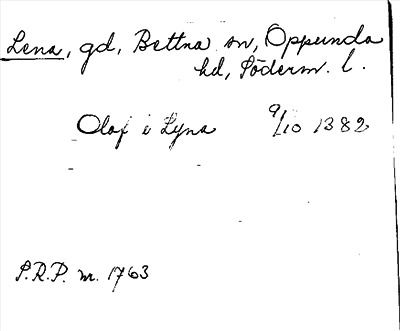 Lena, gd, Bettna sn, Oppunda
hd, Söderm. l.
Olof i Lyna 9/10 1382
S.R.P. nr. 1763